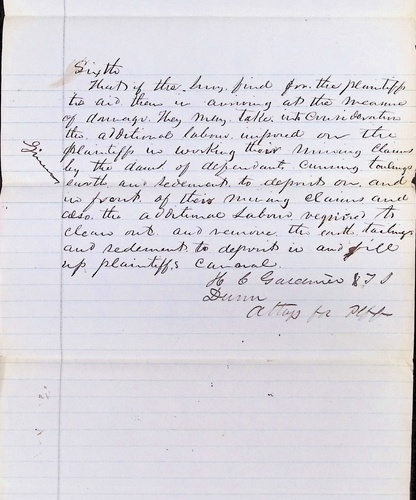 Sixth
That if the Jury find for the plaintiffs
to aid them in arriving at the measure
of damage. They may take into consideration
the additional labour imposed on the
plaintiffs in working their mining claims
by the dam of defendants causing tailings
earth and sedement to deposit on, and
in front of their mining claims and
also the additional labour required to
clean out and remove the earth tailings
and sedement to deposit in and fill
up plaintiffs canal.
H C Gardiner & T J
Dunn
Attys for Plffs
Given